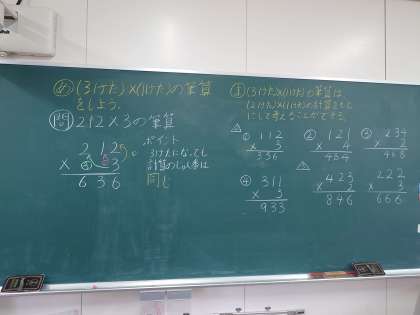 め (3けた)×(1けた)の筆算
をしよう。
問 212×3の筆算
212
× 3
636
ポイント
3けたになっても
計算のしかたは
同じ
ま (3けた)×(1けた)の筆算は
(2けた)×(1けた)の計算をもと
にして考えることができる。
① 112
× 3
336
② 121
× 4
484
③ 234
× 2
468
④ 311
× 3
933
423
× 2
846
222
× 3
666